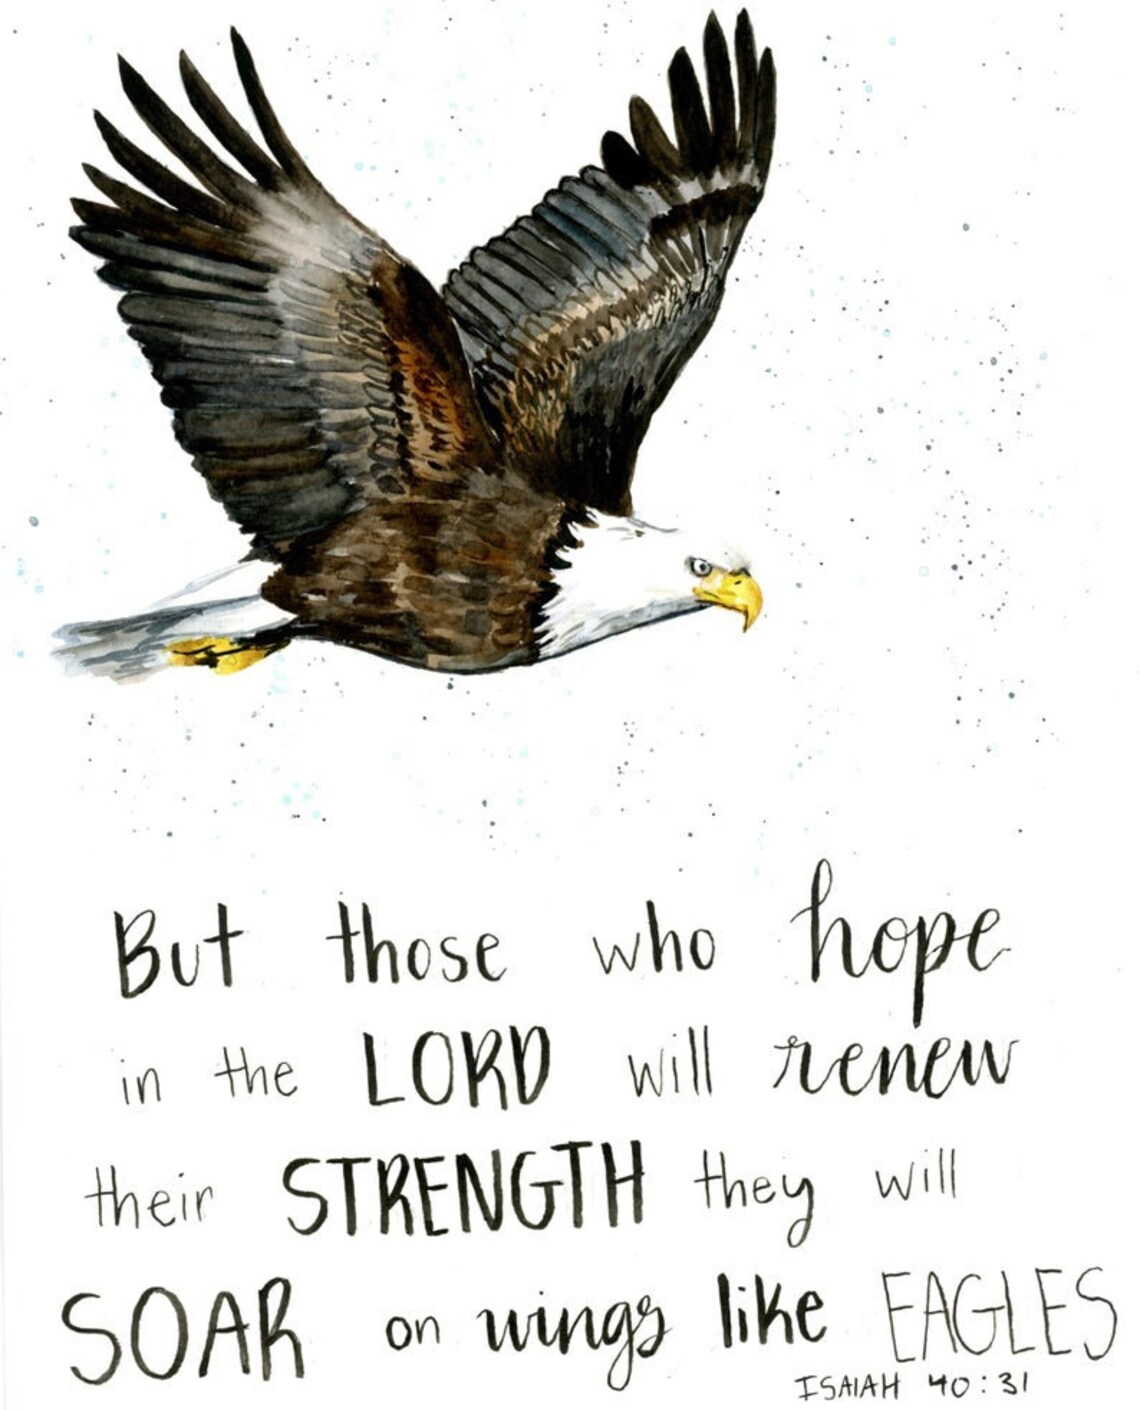 But those who hope
in the LORD will renew
their STRENGTH they will
SOAR on wings like EAGLES
ISAIAH 40:31